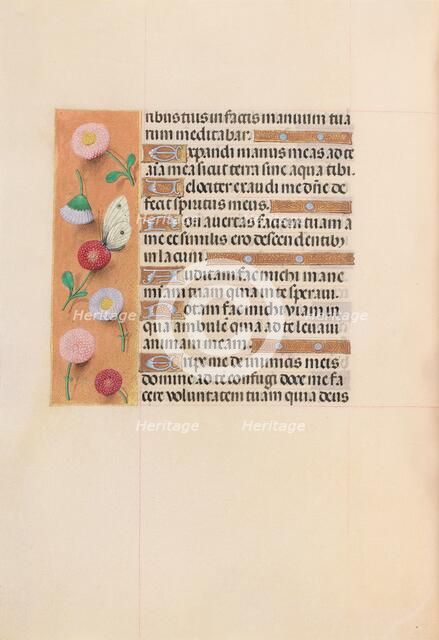 ribus tuis in factis manuum tua
rum meditabar.
Expandi manus meas ad te
aīa mea sicut terra sine aqua tibi.
Velociter exaudi me dn̄e de
fecit spiritus meus.
Non auertas faciem tuam a
me et similis ero descendentibꝰ
in lacum.
Auditam fac michi mane
miam tuam quia in te speraui.
Notam fac michi viam in
qua ambulē quia ad te leuaui
animam meam.
Eripe me de inimicis meis
domine ad te confugi doce me fa
cere voluntatem tuam quia deus
Heritage
Heritage
Heritage
Heritage
Heritage
Heritage
Heritage
Heritage